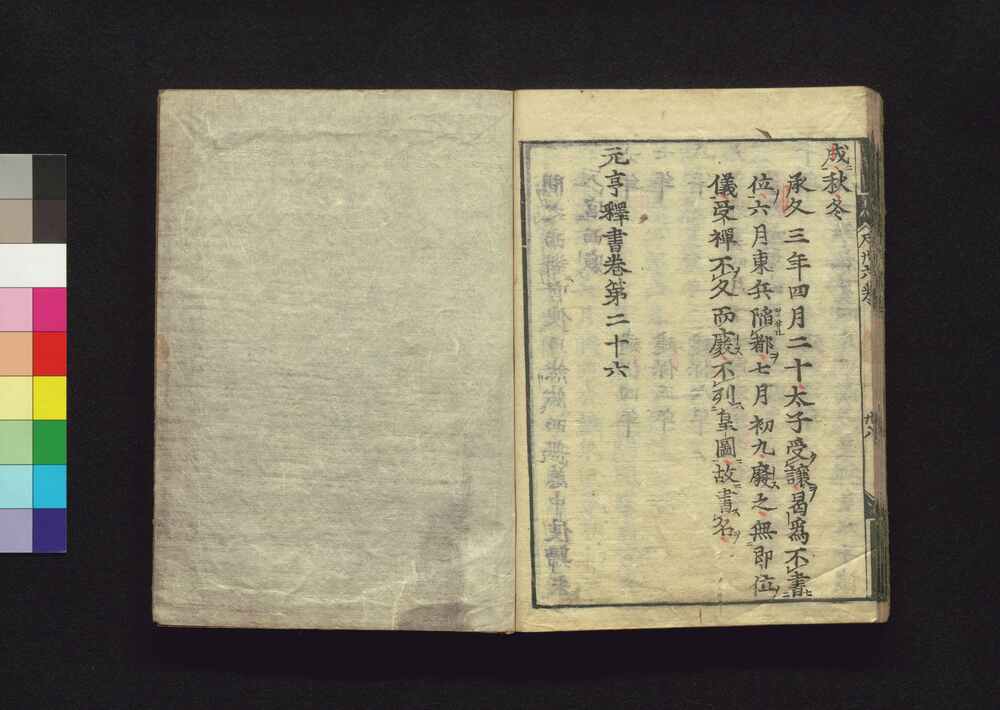 成秋冬
承久三年四月二十太子受讓曷爲不書
位六月東兵陷都七月初九廢之無即位
儀受禪不久而廢不列皇圖故書名
元亨釋書卷第二十六